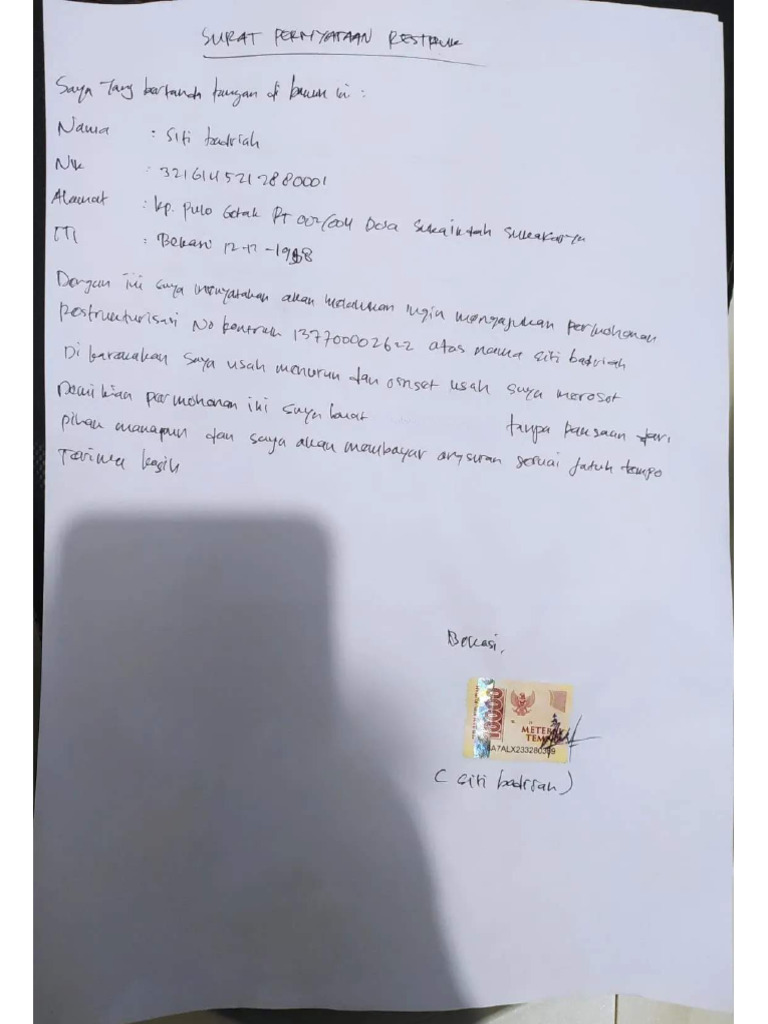 SURAT PERNYATAAN RESTRUK
Saya Yang bertanda tangan di bawah ini :
Nama : Siti badriah
Nik : 3216145212880001
Alamat : kp. Pulo Gotak RT 002/004 Desa Sukaindah Sukakarya
TTl : Bekasi 12-12-1988
Dengan ini saya menyatakan akan melakukan ingin mengajukan permohonan
restrukturisasi No kontrak 137700002622 atas nama siti badriah
Di karenakan saya usah menurun dan omset usah saya merosot
Demikian permohonan ini saya buat tanpa paksaan dari
pihak manapun dan saya akan membayar angsuran sesuai jatuh tempo
Terima kasih
Bekasi,
10000
METER
TEM
A7ALX233280399
( siti badriah )